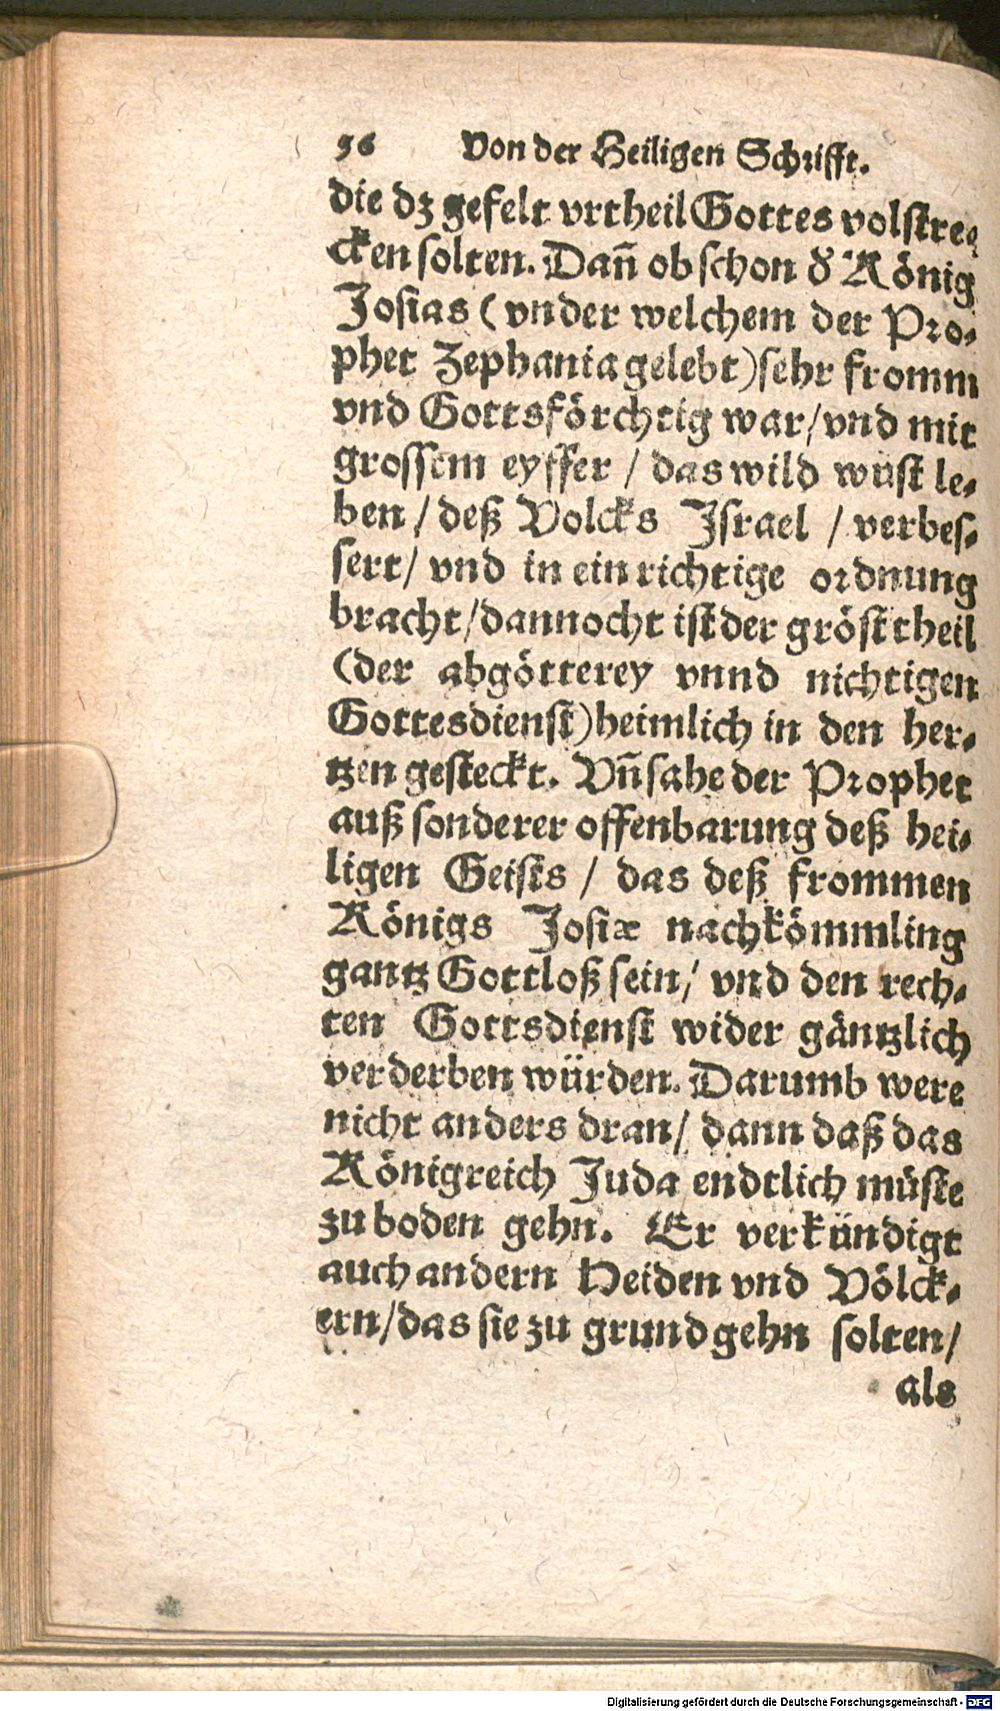 56 Von der Heiligen Schrifft.
die dz gefelt vrtheil Gottes volstre⸗
cken solten. Dañ ob schon ď König
Josias (vnder welchem der Pro⸗
phet Zephania gelebt) sehr fromm
vnd Gottsförchtig war/ vnd mit
grossem eyffer / das wild wüst le⸗
ben / deß Volcks Israel / verbes⸗
sert/ vnd in ein richtige ordnung
bracht/ dannocht ist der gröst theil
(der abgötterey vnnd nichtigen
Gottesdienst) heimlich in den her⸗
tzen gesteckt. Vñ sahe der Prophet
auß sonderer offenbarung deß hei⸗
ligen Geists / das deß frommen
Königs Josiæ nachkömmling
gantz Gottloß sein/ vnd den rech⸗
ten Gottsdienst wider gäntzlich
verderben würden. Darumb were
nicht anders dran/ dann daß das
Königreich Juda endtlich müste
zu boden gehn. Er verkündigt
auch andern Heiden vnd Völck⸗
ern/ das sie zu grund gehn solten/
als
Digitalisierung gefördert durch die Deutsche Forschungsgemeinschaft - DFG